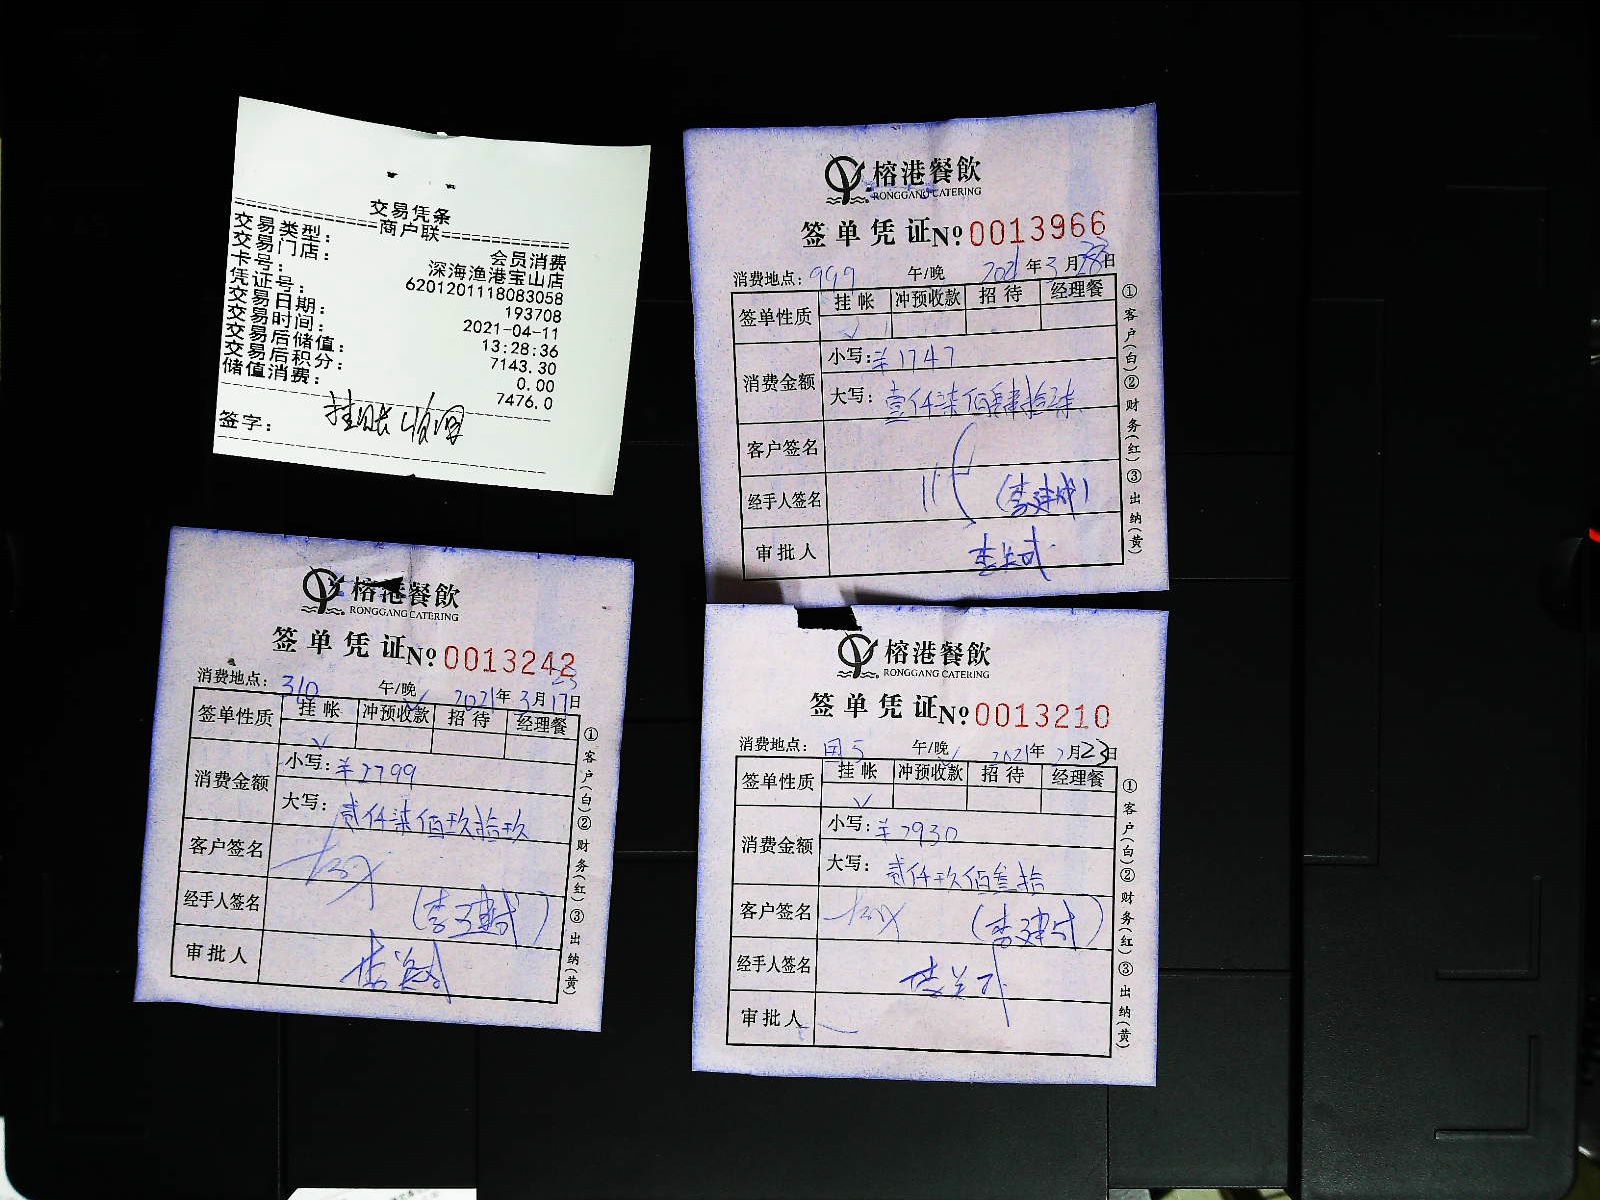 交易凭条
商户联
交易类型： 会员消费
交易门店： 深海渔港宝山店
卡号： 6201201118083058
凭证号： 193708
交易日期： 2021-04-11
交易时间： 13:28:36
交易后储值： 7143.30
交易后积分： 0.00
储值消费： 7476.0
签字： 挂账收回
榕港餐飲
RONGGANG CATERING
签单凭证 Nº 0013966
消费地点： 999 午/晚 2021年3月28日
签单性质 挂帐 冲预收款 招待 经理餐
√
消费金额 小写：¥1747
大写：壹仟柒佰肆拾柒
客户签名
经手人签名 (李建成)
审批人
①客户(白)②财务(红)③出纳(黄)
榕港餐飲
RONGGANG CATERING
签单凭证 Nº 0013242
消费地点： 310 午/晚 2021年3月17日
签单性质 挂帐 冲预收款 招待 经理餐
√
消费金额 小写：¥2799
大写：贰仟柒佰玖拾玖
客户签名
经手人签名 (李建成)
审批人
①客户(白)②财务(红)③出纳(黄)
榕港餐飲
RONGGANG CATERING
签单凭证 Nº 0013210
消费地点： 午/晚 2021年2月23日
签单性质 挂帐 冲预收款 招待 经理餐
√
消费金额 小写：¥2930
大写：贰仟玖佰叁拾
客户签名 (李建成)
经手人签名
审批人
①客户(白)②财务(红)③出纳(黄)